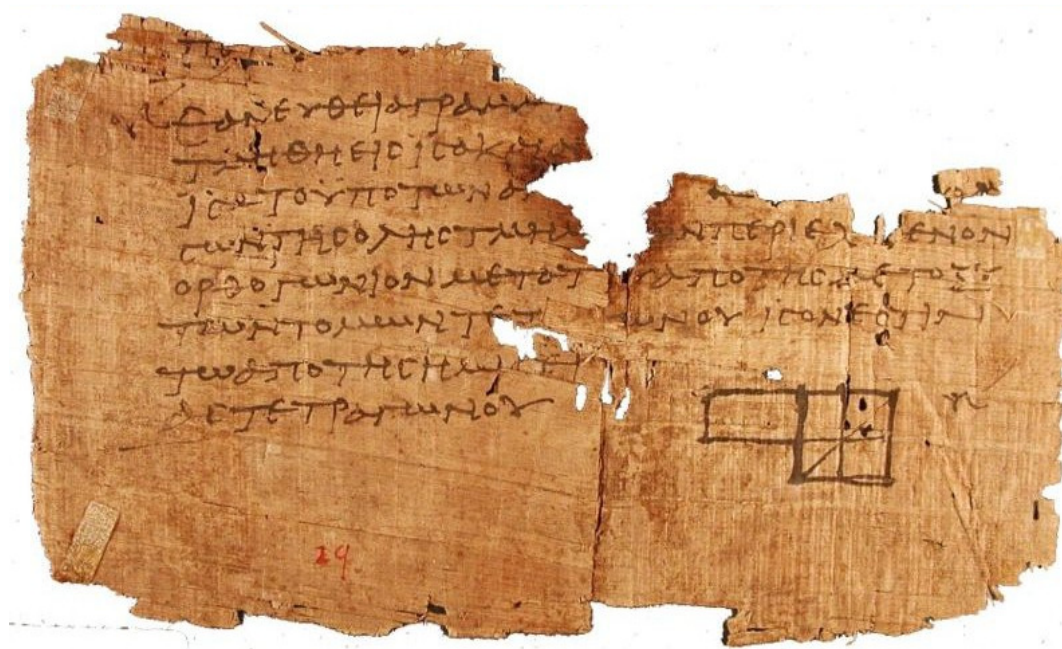 ΕΑΝ ΕΥΘΕΙΑ ΓΡΑΜΜ
ΤΜΗΘΗ ΕΙϹ ΙϹΑ ΚΑΙ ΑΝ
ΙϹΑ ΤΟ ΥΠΟ ΤΩΝ ΑΝ
ΤΩΝ ΤΗϹ ΟΛΗϹ ΤΜΗΜ ΩΝ ΠΕΡΙΕΧ ΜΕΝΟΝ
ΟΡΘΟΓΩΝΙΟΝ ΜΕΤΑ Τ Υ ΑΠΟ ΤΗϹ ΜΕΤΟΞΥ
ΤΩΝ ΤΟΜΩΝ ΤΕΤ ΓΩΝΟΥ ΙϹΟΝ ΕϹΤΙΝ
ΤΩ ΑΠΟ ΤΗϹ ΗΜΙϹΕΙ
ΑϹ ΤΕΤΡΑΓΩΝΟΥ
29